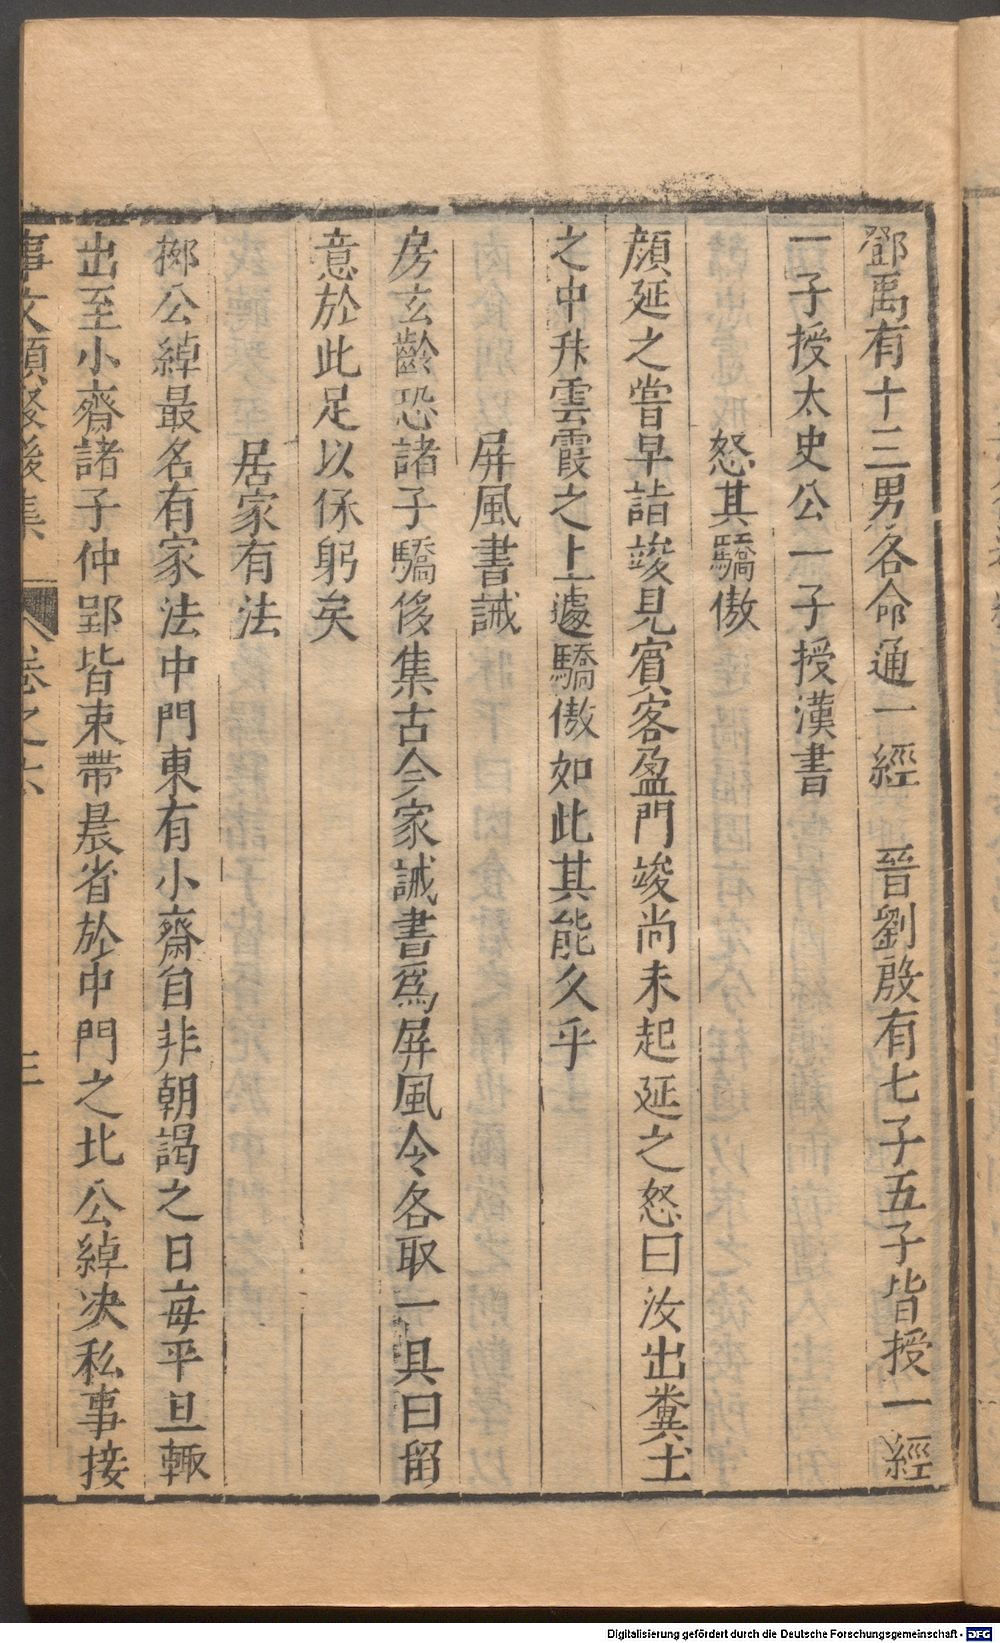 鄧禹有十三男各命通一經　晉劉殷有七子五子皆授一經
一子授太史公一子授漢書
怒其驕傲
顏延之甞早詣竣見賓客盈門竣尚未起延之怒曰汝出糞土
之中升雲霞之上遽驕傲如此其能久乎
屏風書誡
房玄齡恐諸子驕侈集古今家誡書爲屏風令各取一具曰留
意於此足以保躬矣
居家有法
柳公綽最名有家法中門東有小齋自非朝謁之日每平旦輙
出至小齋諸子仲郢皆束帶晨省於中門之北公綽决私事接
事文類聚後集　卷之六　三
Digitalisierung gefördert durch die Deutsche Forschungsgemeinschaft - DFG